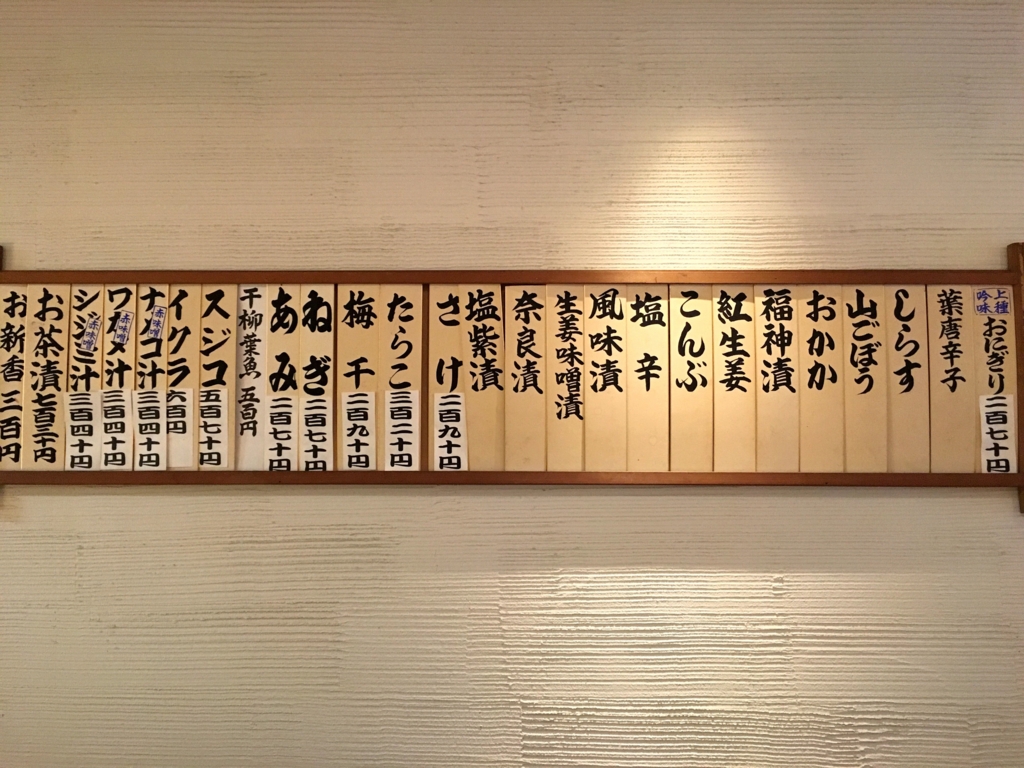 上種
吟味
おにぎり
二百七十円
葉唐辛子
しらす
山ごぼう
おかか
福神漬
紅生姜
こんぶ
塩辛
風味漬
生姜味噌漬
奈良漬
塩紫漬
さけ
二百九十円
たらこ
三百二十円
梅干
二百九十円
ねぎ
二百七十円
あみ
二百七十円
千柳葉魚 五百円
スジコ
五百七十円
イクラ
六百円
ナメコ汁
赤味噌
三百四十円
ワカメ汁
赤味噌
三百四十円
シジミ汁
赤味噌
三百四十円
お茶漬 七百三十円
お新香 三百円